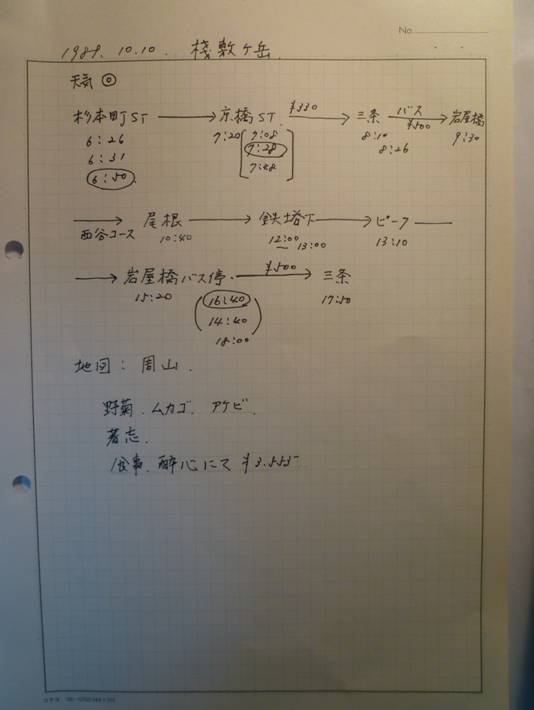 No.
1989. 10. 10. 棧敷ヶ岳.
天気 ◎
杉本町ST → 京橋ST. ¥330 → 三条 バス ¥500 → 岩屋橋
6:26 7:20 7:08 8:10 9:30
6:31 7:28 8:26
6:50 7:48
→ 西谷コース 尾根 → 鉄塔下 → ピーク —
10:40 12:00 ~ 13:00 13:10
→ 岩屋橋バス停. ¥500 → 三条
15:20 16:40 17:50
14:40
18:00
地図: 周山.
野菊. ムカゴ. アケビ.
著志.
食事. 酔心にて ¥3.555